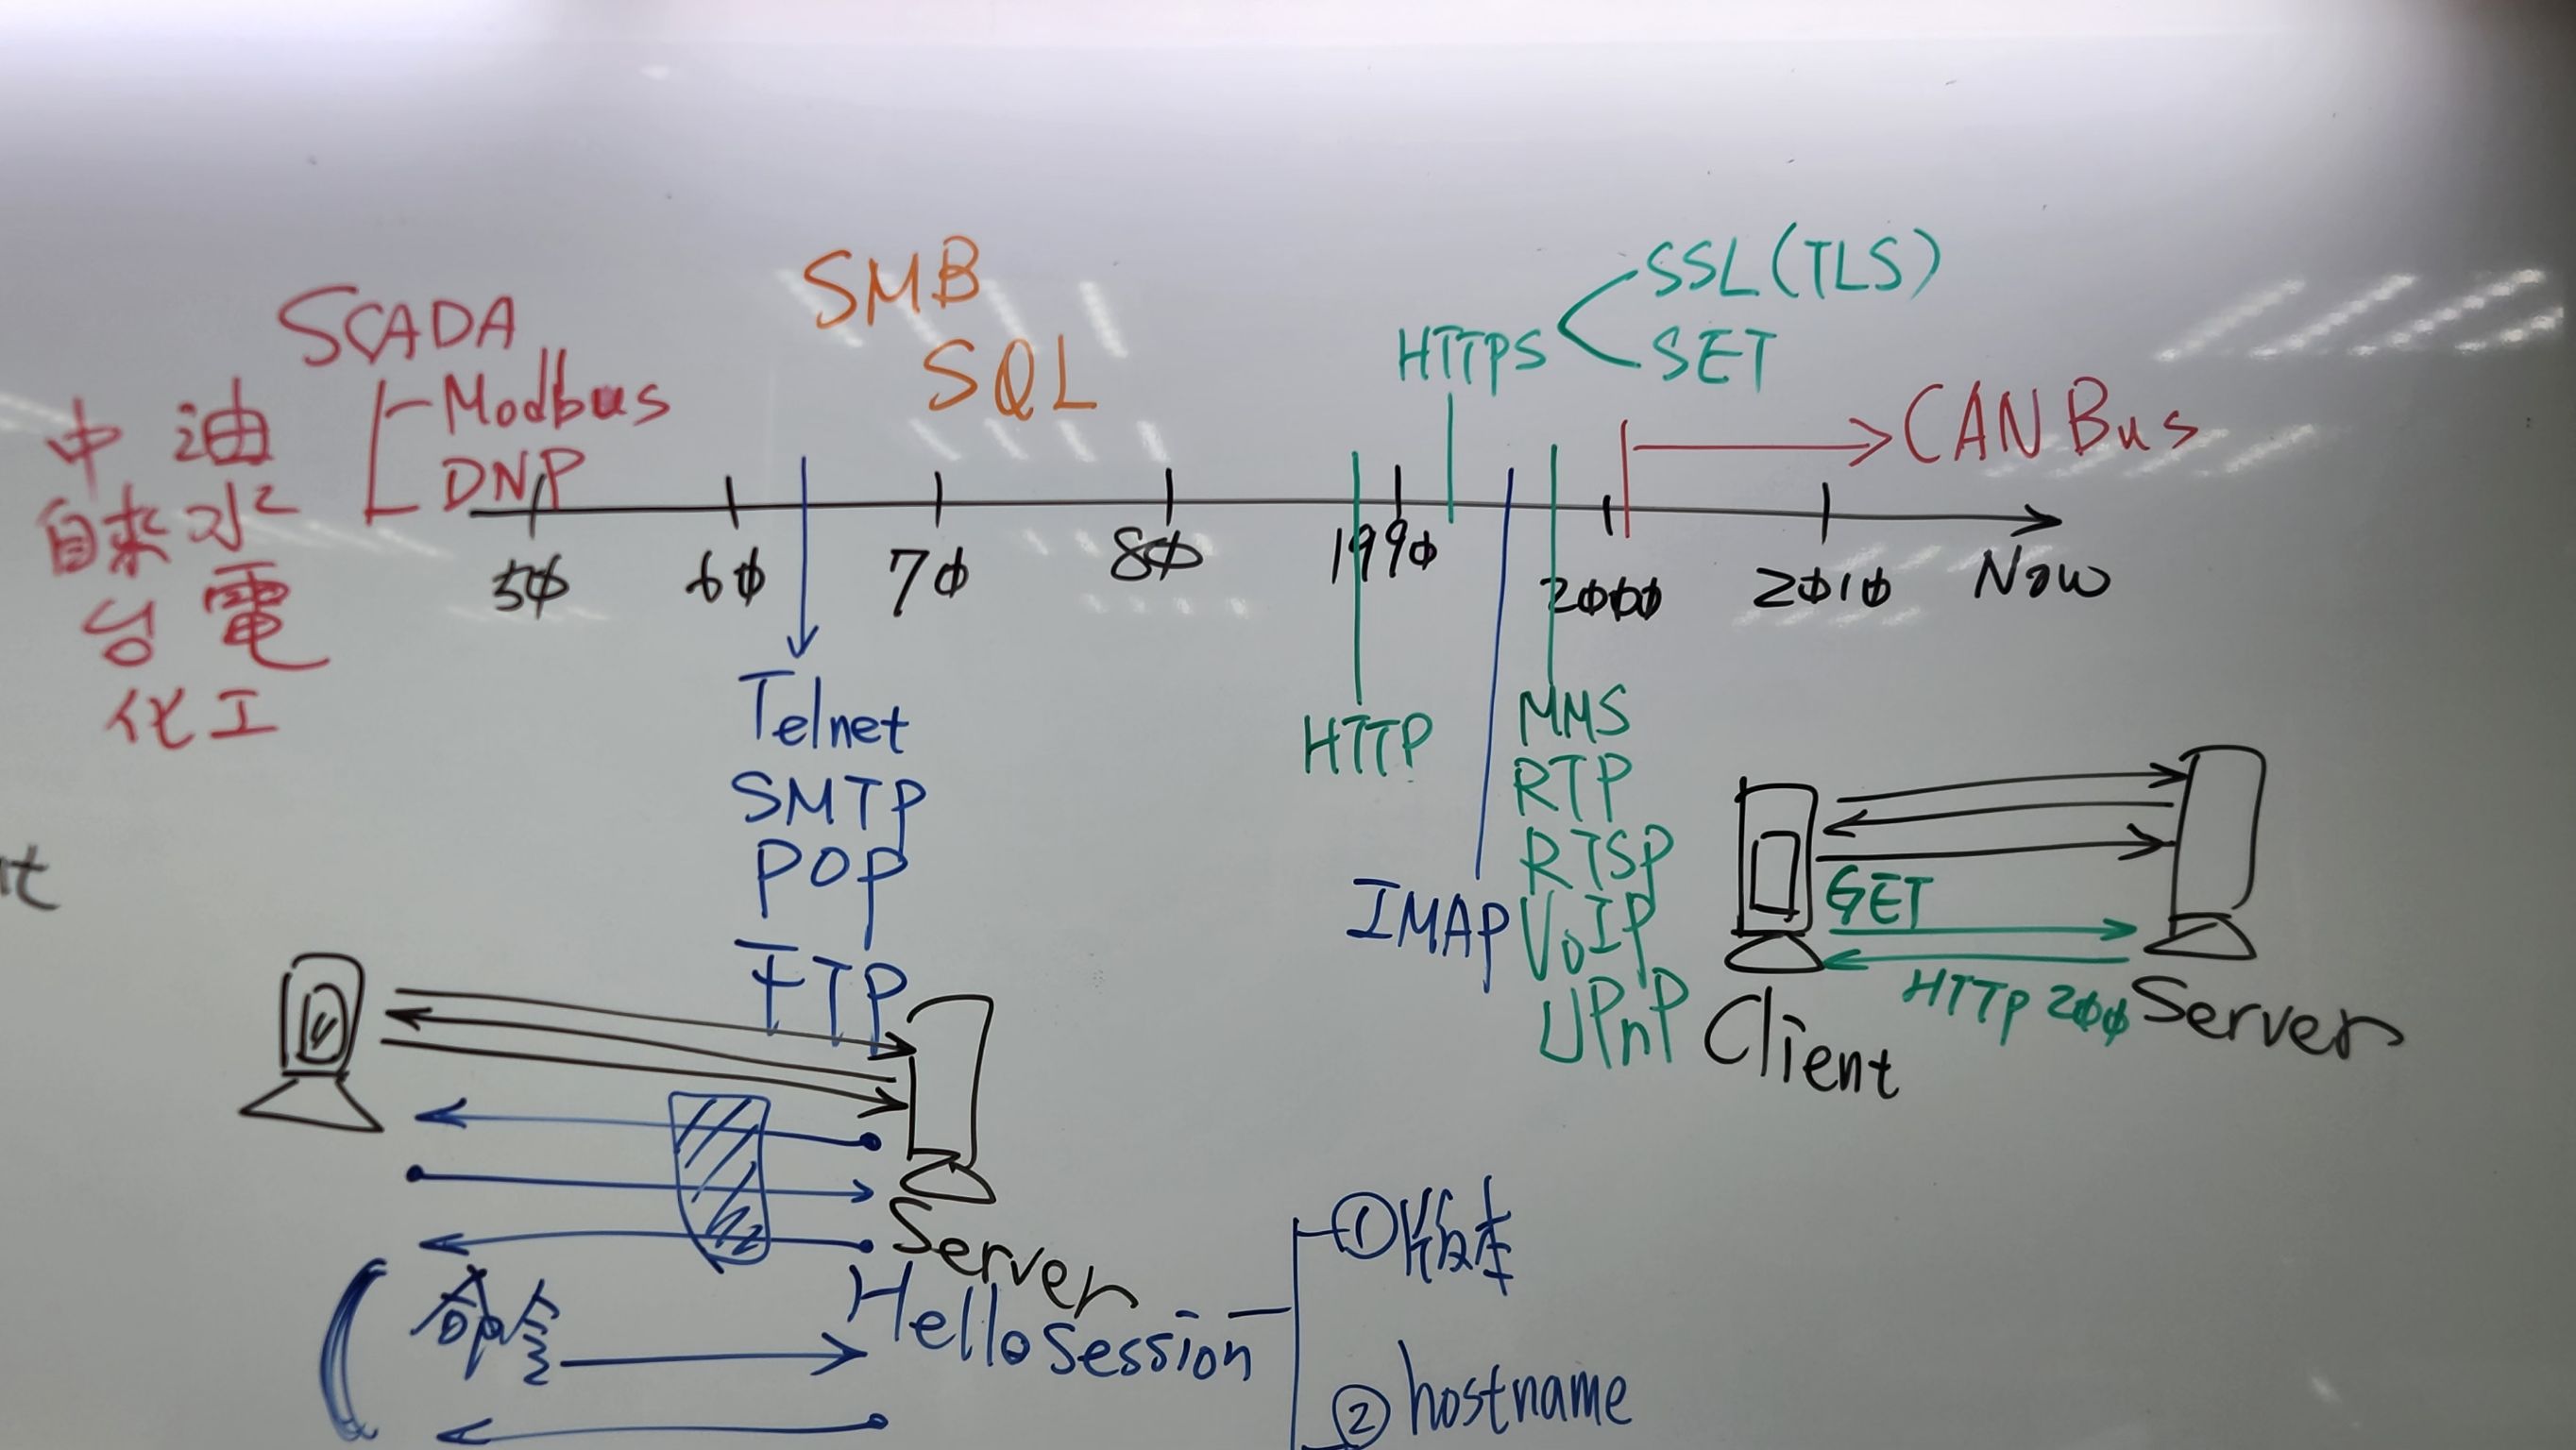 SCADA
Modbus
DNP
中油
自來水
台電
化工
SMB
SQL
HTTPS
SSL (TLS)
SET
CAN Bus
50
60
70
80
1990
2000
2010
Now
Telnet
SMTP
POP
FTP
HTTP
IMAP
MMS
RTP
RTSP
VoIP
UPnP
GET
HTTP 200
Client
Server
Server
Hello Session
命令
①版本
②hostname